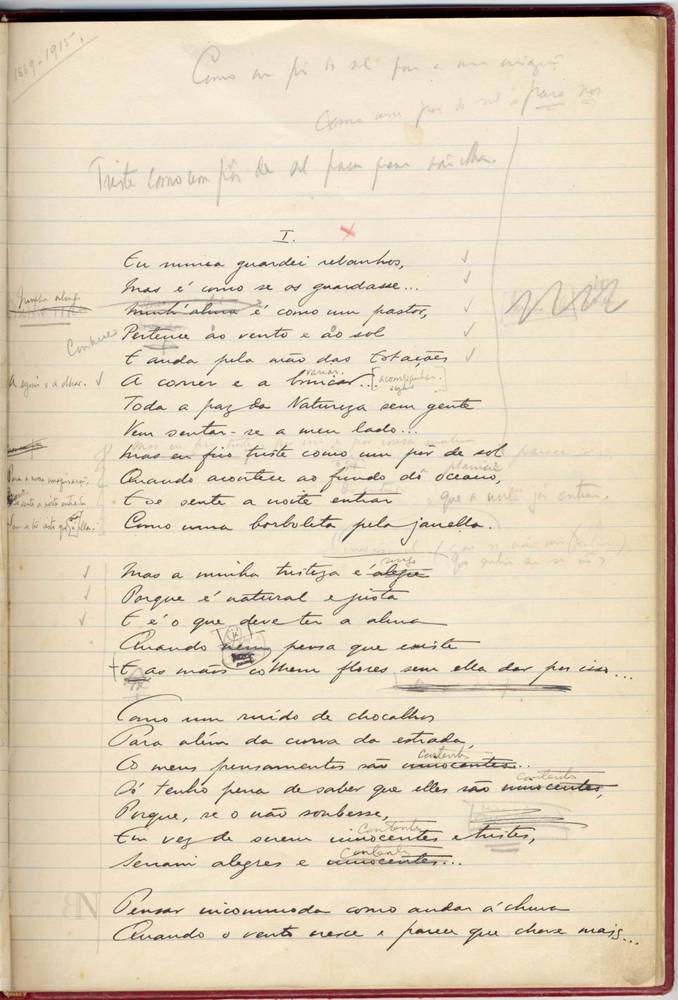 1889-1915.
Como um pôr de sol
Como um pôr de sol para nos
Triste como um pôr de sol para quem
I.
Eu nunca guardei rebanhos,
Mas é como se os guardasse...
Minh'alma é como um pastor,
Conhece
Pertence ao vento e ao sol
E anda pela mão das Estações
A seguir e a olhar.
A correr e a brincar...
Toda a paz da Natureza sem gente
Vem sentar-se a meu lado...
Mas eu fico triste como um pôr de sol
Quando acontece ao fundo do oceano,
E se sente a noite entrar
Como uma borboleta pela janella.
Mas a minha tristeza é alegre
Porque é natural e justa
E é o que deve ter a alma
Quando nem pensa que existe
E as mãos colhem flores sem ella dar por isso...
Como um ruido de chocalhos
Para além da curva da estrada,
contentes
Os meus pensamentos são innocentes...
contentes
Só tenho pena de saber que elles são innocentes,
Porque, se o não soubesse,
contentes
Em vez de serem innocentes e tristes,
contentes
Seriam alegres e innocentes...
Pensar incommoda como andar á chuva
Quando o vento cresce e parece que chove mais...